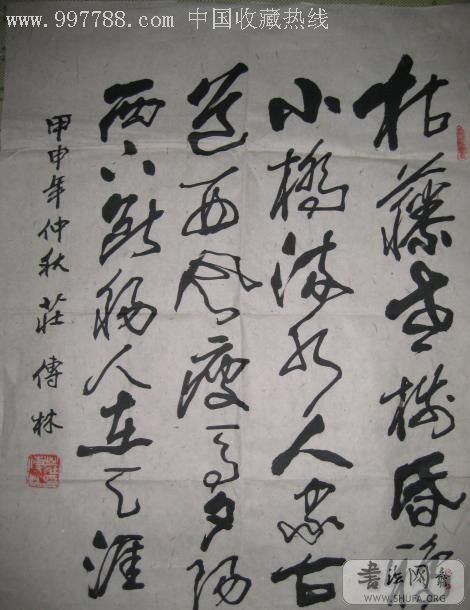 www.997788.com 中国收藏热线
枯藤老樹昏鴉
小橋流水人家古
道西風瘦馬夕陽
西下斷腸人在天涯
甲申年仲秋 莊傳林
書法网
WWW.SHUFA.ORG